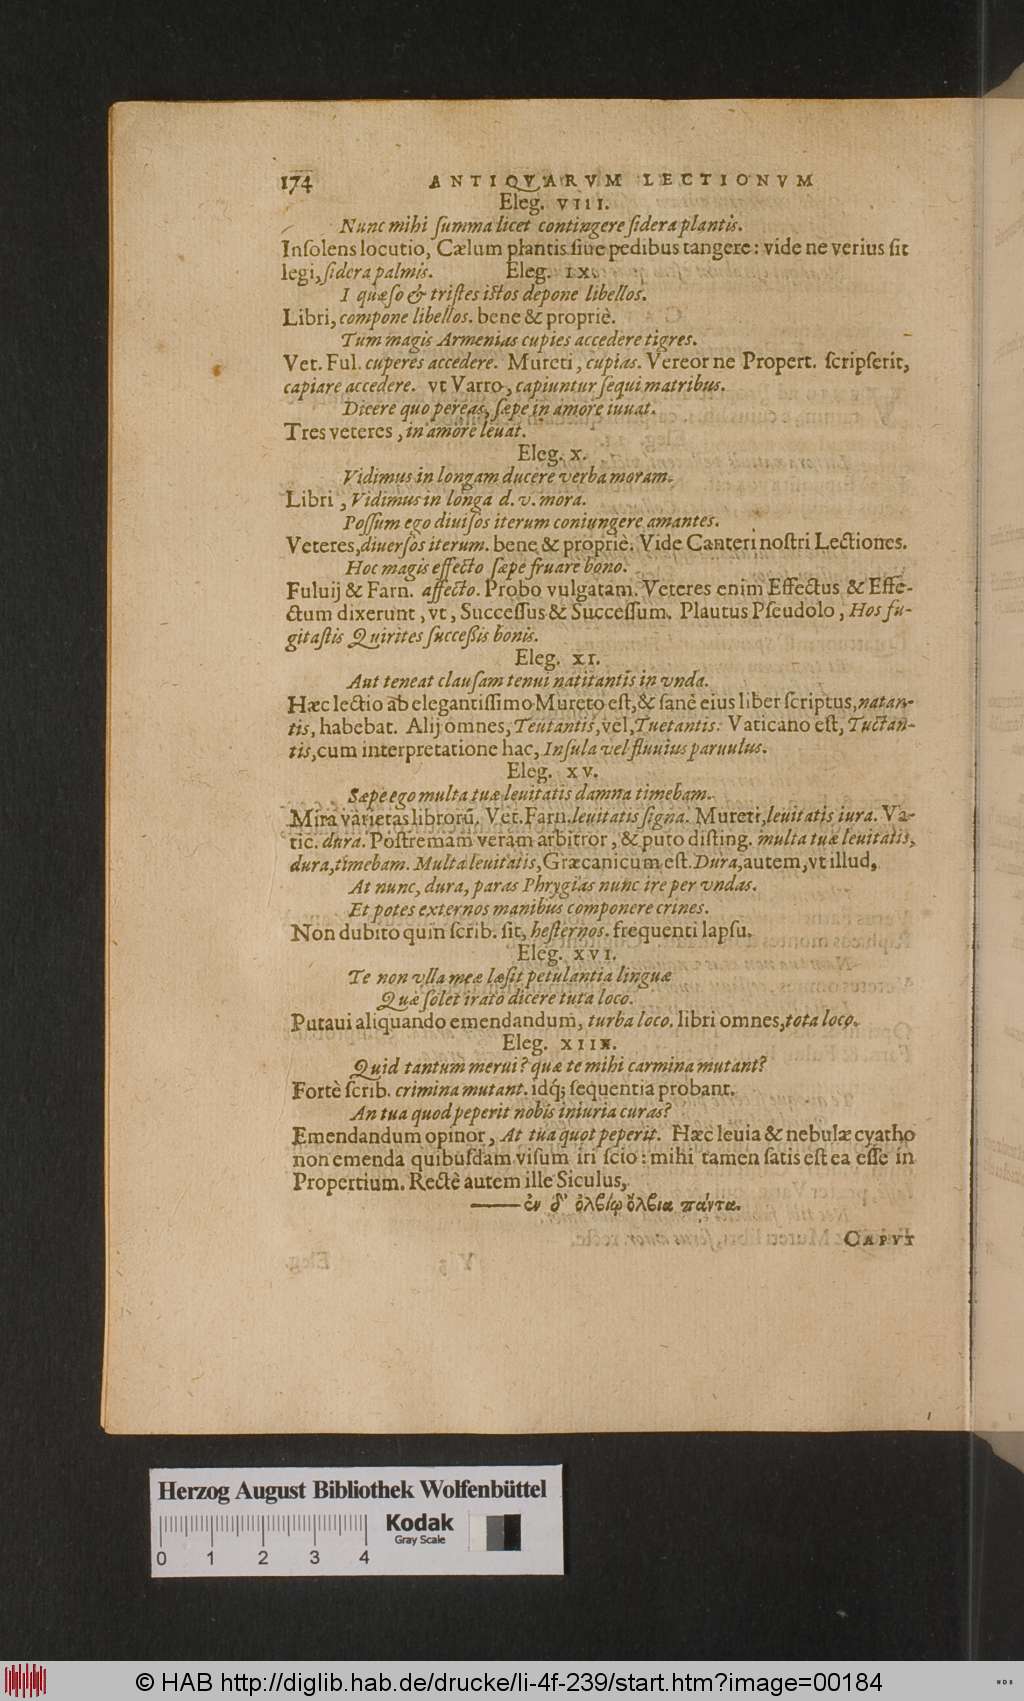 174 ANTIQVARVM LECTIONVM
Eleg. VIII.
Nunc mihi ſumma licet contingere ſidera plantis.
Inſolens locutio, Cælum plantis ſiue pedibus tangere: vide ne verius ſit
legi, ſidera palmis. Eleg. IX.
I quæſo & triſtes iſtos depone libellos.
Libri, compone libellos. bene & propriè.
Tum magis Armenias cupies accedere tigres.
Vet. Ful. cuperes accedere. Mureti, cupias. Vereor ne Propert. ſcripſerit,
capiare accedere. vt Varro, capiuntur ſequi matribus.
Dicere quo pereas, ſæpe in amore iuuat.
Tres veteres, in amore leuat.
Eleg. X.
Vidimus in longam ducere verba moram.
Libri, Vidimus in longa d. v. mora.
Poſſum ego diuiſos iterum coniungere amantes.
Veteres, diuerſos iterum. bene & propriè. Vide Canteri noſtri Lectiones.
Hoc magis effecto ſæpe fruare bono.
Fuluij & Farn. affecto. Probo vulgatam. Veteres enim Effectus & Effe-
ctum dixerunt, vt, Succeſſus & Succeſſum. Plautus Pſeudolo, Hos fu-
gitaſtis Quirites ſucceſsis bonis.
Eleg. XI.
Aut teneat clauſam tenui natitantis in vnda.
Hæc lectio ab elegantiſſimo Mureto eſt, & ſanè eius liber ſcriptus, natan-
tis, habebat. Alij omnes, Teutantis, vel, Tuetantis: Vaticano eſt, Tuctan-
tis, cum interpretatione hac, Inſula vel fluuius paruulus.
Eleg. XV.
Sæpe ego multa tuæ leuitatis damna timebam.
Mira varietas librorũ, Vet. Farn. leuitatis ſigna. Mureti, leuitatis iura. Va-
tic. dura. Poſtremam veram arbitror, & puto diſting. multa tuæ leuitatis,
dura, timebam. Multa leuitatis, Græcanicum eſt. Dura, autem, vt illud,
At nunc, dura, paras Phrygias nunc ire per vndas.
Et potes externos manibus componere crines.
Non dubito quin ſcrib. ſit, heſternos. frequenti lapſu.
Eleg. XVI.
Te non vlla meæ læſit petulantia linguæ
Quæ ſolet irato dicere tuta loco.
Putaui aliquando emendandum, turba loco. libri omnes, tota loco.
Eleg. XIIX.
Quid tantum merui? quæ te mihi carmina mutant?
Fortè ſcrib. crimina mutant. idq́; ſequentia probant.
An tua quod peperit nobis iniuria curas?
Emendandum opinor, At tua quot peperit. Hæc leuia & nebulæ cyatho
non emenda quibuſdam viſum iri ſcio: mihi tamen ſatis eſt ea eſſe in
Propertium. Rectè autem ille Siculus,
—— ἐν δ' ὀλβίῳ ὄλβια πάντα.
CAPVT
Herzog August Bibliothek Wolfenbüttel
Kodak
Gray Scale
0 1 2 3 4
© HAB http://diglib.hab.de/drucke/li-4f-239/start.htm?image=00184